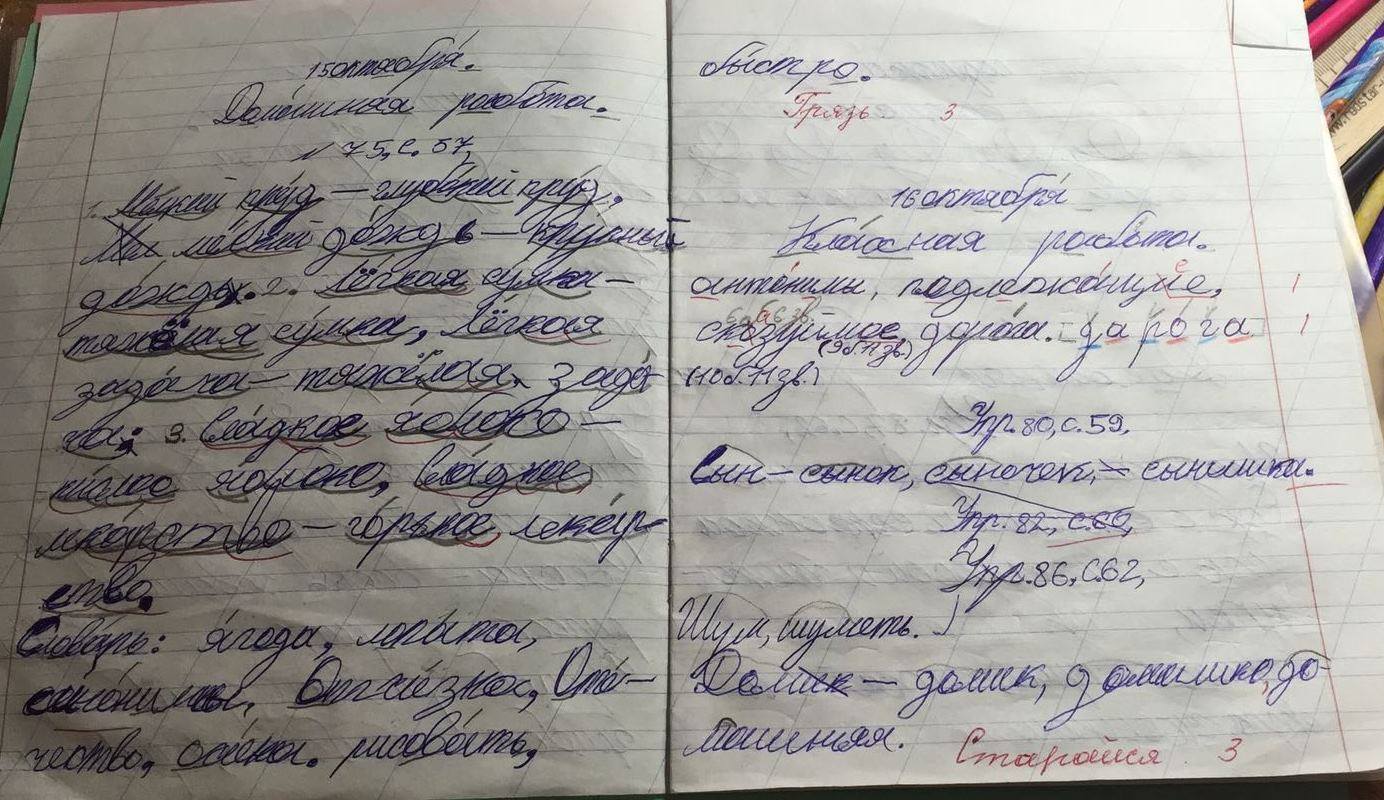 15 октября.
Домашняя работа.
№ 75, с. 57,
1. Мелкий пруд — глубокий пруд.
мелкий дождь — крупный
дождь. 2. Лёгкая сумка —
тяжёлая сумка, лёгкая
задача — тяжёлая зада-
ча. 3. Сладкое яблоко —
кислое яблоко, сладкое
лекарство — горькое лекар-
ство.
Словарь: ягода, лопата,
синонимы, Отчизна, Оте-
чество, осина. рисовать,
быстро.
Грязь 3
16 октября
Классная работа.
антонимы, подлежащие, 1
сказуемое, дорога. дарога 1
(9б.11зв.)
(10б.11зв.)
Упр. 80, с. 59,
Сын — сынок, сыночек, — сынишка.
Упр. 82, с. 60,
Упр. 86, с. 62,
Шум, шуметь.
Домик — домик, домишко, до-
машняя.
Старайся 3